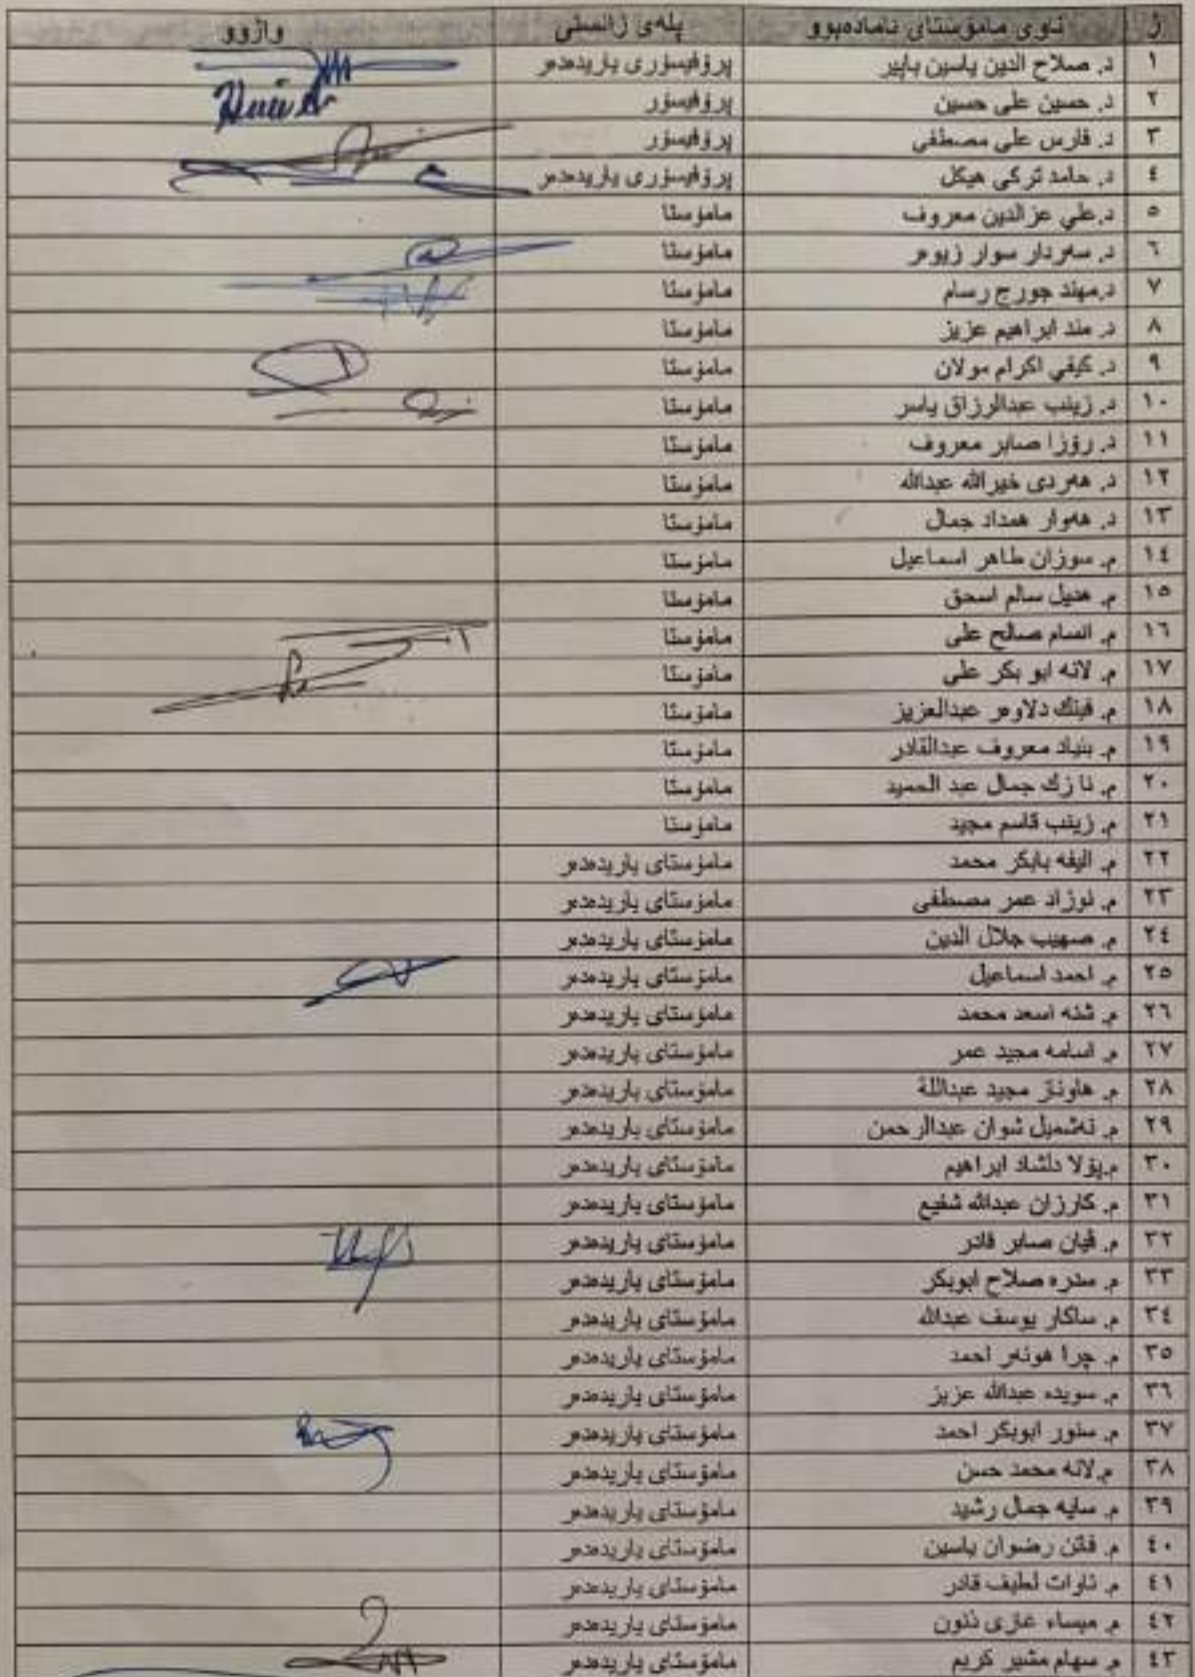 ژ ناوی مامۆستای ئامادەبوو پلەی زانستی واژوو
١ د. صلاح الدين ياسين بابير پرۆفیسۆری یاریدەدەر
٢ د. حسين علي حسين پرۆفیسۆر
٣ د. فارس علي مصطفى پرۆفیسۆر
٤ د. حامد تركي هيكل پرۆفیسۆری یاریدەدەر
٥ د.علي عزالدين معروف مامۆستا
٦ د. سەردار سوار زیوەر مامۆستا
٧ د.مهند جورج رسام مامۆستا
٨ د. مند ابراهيم عزيز مامۆستا
٩ د. كيفي اكرام مولان مامۆستا
١٠ د. زينب عبدالرزاق ياسر مامۆستا
١١ د. رۆزا صابر معروف مامۆستا
١٢ د. هەردی خيرالله عبدالله مامۆستا
١٣ د. هەوار همداد جمال مامۆستا
١٤ م. سوزان طاهر اسماعيل مامۆستا
١٥ م. هديل سالم اسحق مامۆستا
١٦ م. انسام صالح علي مامۆستا
١٧ م. لانه ابو بكر علي مامۆستا
١٨ م. فينك دلاوەر عبدالعزيز مامۆستا
١٩ م. بنياد معروف عبدالقادر مامۆستا
٢٠ م. نا زك جمال عبد الحميد مامۆستا
٢١ م. زينب قاسم مجيد مامۆستا
٢٢ م. اليفه بابكر محمد مامۆستای یاریدەدەر
٢٣ م. نوزاد عمر مصطفى مامۆستای یاریدەدەر
٢٤ م. صهيب جلال الدين مامۆستای یاریدەدەر
٢٥ م. احمد اسماعيل مامۆستای یاریدەدەر
٢٦ م. شنه اسعد محمد مامۆستای یاریدەدەر
٢٧ م. اسامه مجيد عمر مامۆستای یاریدەدەر
٢٨ م. هاوناز مجيد عبداللة مامۆستای یاریدەدەر
٢٩ م. نەشميل شوان عبدالرحمن مامۆستای یاریدەدەر
٣٠ م.پۆلا دلشاد ابراهيم مامۆستای یاریدەدەر
٣١ م. كارزان عبدالله شفيع مامۆستای یاریدەدەر
٣٢ م. ڤيان صابر قادر مامۆستای یاریدەدەر
٣٣ م. سدره صلاح ابوبكر مامۆستای یاریدەدەر
٣٤ م. ساكار يوسف عبدالله مامۆستای یاریدەدەر
٣٥ م. چرا هونەر احمد مامۆستای یاریدەدەر
٣٦ م. سويده عبدالله عزيز مامۆستای یاریدەدەر
٣٧ م. سنور ابوبكر احمد مامۆستای یاریدەدەر
٣٨ م.لانه محمد حسن مامۆستای یاریدەدەر
٣٩ م. سايه جمال رشيد مامۆستای یاریدەدەر
٤٠ م. فاتن رضوان ياسين مامۆستای یاریدەدەر
٤١ م. ئاوات لطيف قادر مامۆستای یاریدەدەر
٤٢ م. ميساء غازي ذنون مامۆستای یاریدەدەر
٤٣ م. سهام مشير كريم مامۆستای یاریدەدەر